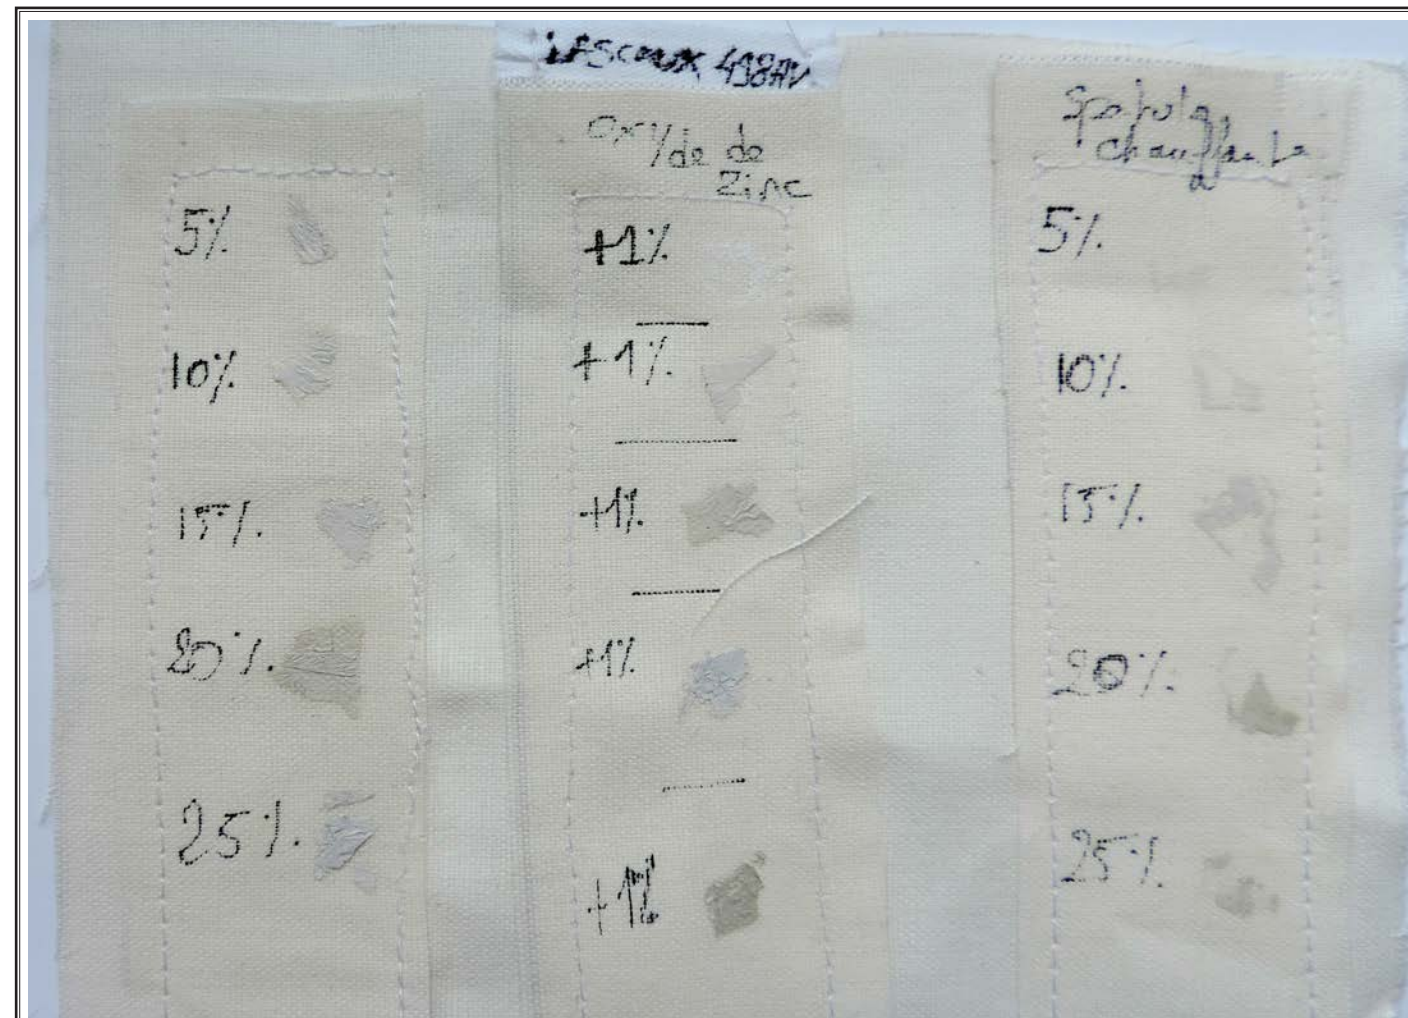 LASCAUX 498HV
5%
10%
15%
20%
25%
Oxyde de
Zinc
+1%
+1%
+1%
+1%
+1%
Spatule
chauffante
5%
10%
15%
20%
25%